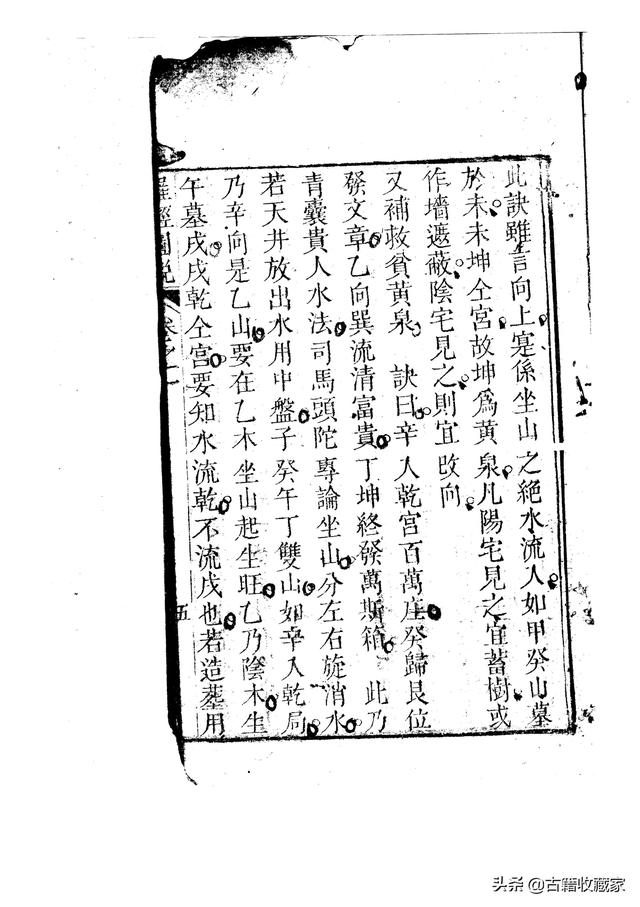 此訣雖言向上寔係坐山之絶水流人如甲癸山墓
於未未坤仝宮故坤爲黄泉凡陽宅見之宜蓄樹或
作墻遮蔽陰宅見之則宜改向
又補救貧黄泉 訣曰辛人乾宮百萬庄癸歸艮位
發文章乙向巽流清富貴丁坤終發萬斯箱 此乃
青囊貴人水法司馬頭陀專論坐山分左右旋消水
若天井放出水用中盤子癸午丁雙山如辛入乾局
乃辛向是乙山要在乙木坐山起生旺乙乃陰木生
午墓戌戌乾仝宮要知水流乾不流戌也若造葬用
羅經圖説 卷之一 五
头条 @古籍收藏家